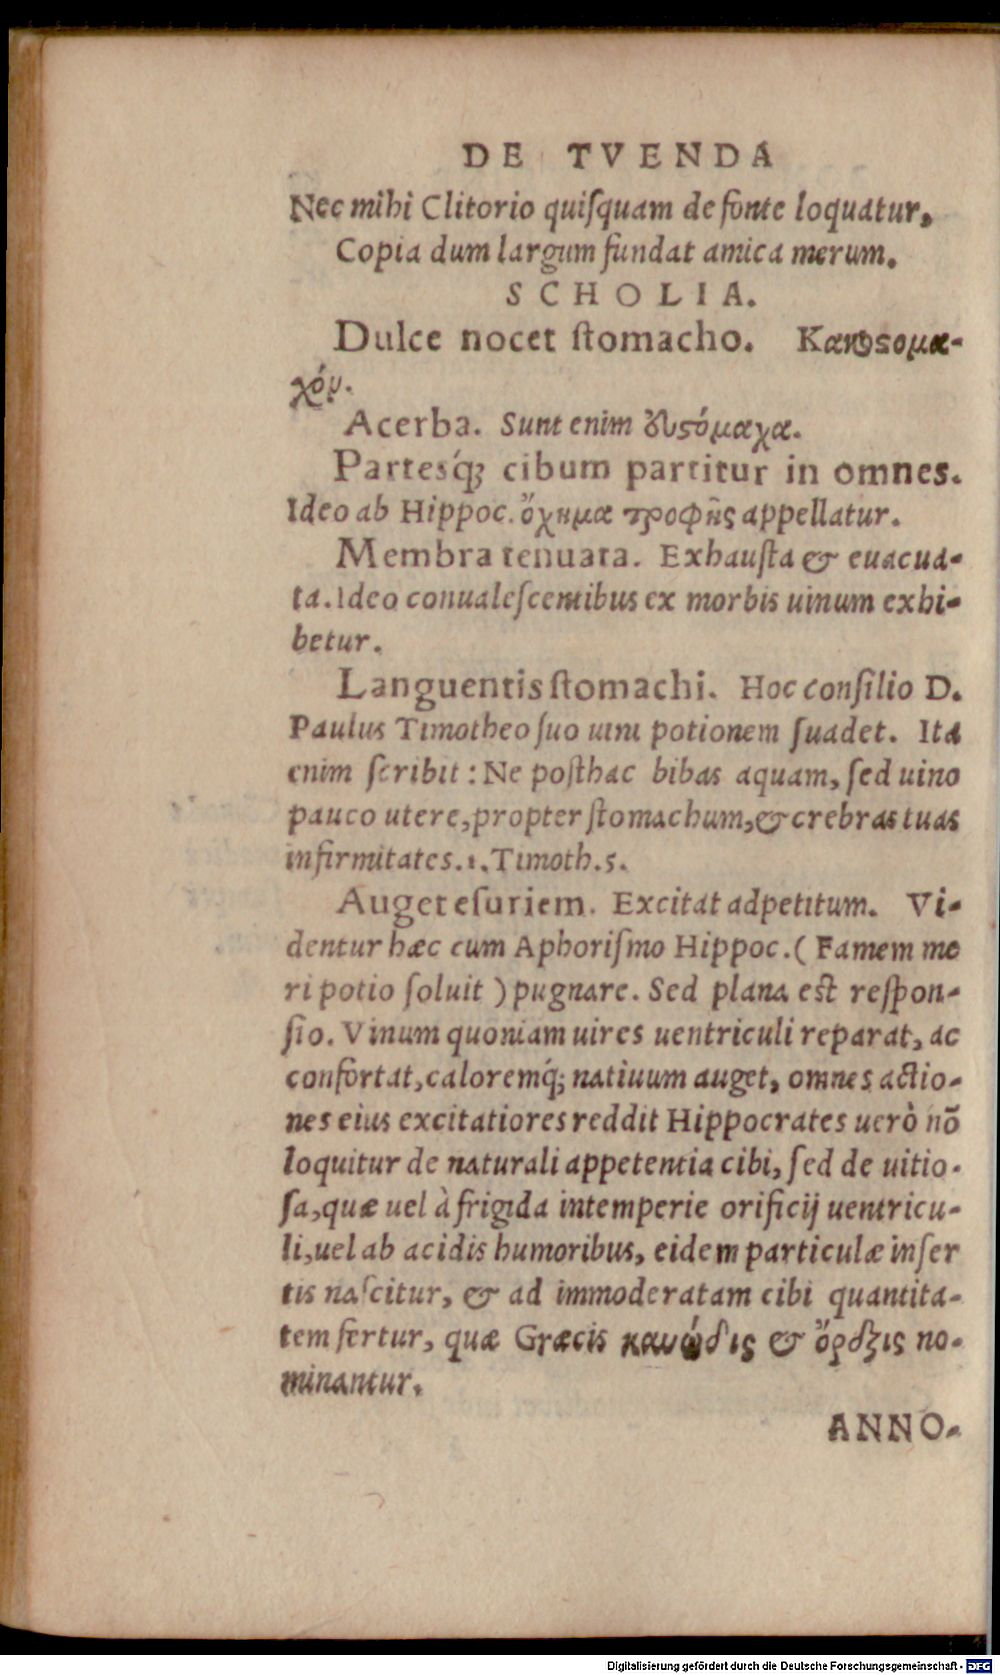 DE TVENDA
Nec mihi Clitorio quiſquam de fonte loquatur,
Copia dum largum fundat amica merum.
SCHOLIA.
Dulce nocet ſtomacho. Κακοϛομα-
χόν.
Acerba. Sunt enim δυϛόμαχα.
Partesq́; cibum partitur in omnes.
Ideo ab Hippoc. ὄχημα τροφῆς appellatur.
Membra tenuata. Exhauſta & euacua-
ta. Ideo conualeſcentibus ex morbis uinum exhi-
betur.
Languentis ſtomachi. Hoc conſilio D.
Paulus Timotheo ſuo uini potionem ſuadet. Ita
enim ſcribit: Ne poſthac bibas aquam, ſed uino
pauco utere, propter ſtomachum, & crebras tuas
infirmitates. 1. Timoth. 5.
Auget eſuriem. Excitat adpetitum. Vi-
dentur hæc cum Aphoriſmo Hippoc. (Famem me
ri potio ſoluit) pugnare. Sed plana eſt reſpon-
ſio. Vinum quoniam uires uentriculi reparat, ac
confortat, caloremq́; natiuum auget, omnes actio-
nes eius excitatiores reddit Hippocrates uerò nō
loquitur de naturali appetentia cibi, ſed de uitio-
ſa, quæ uel à frigida intemperie orificij uentricu-
li, uel ab acidis humoribus, eidem particulæ inſer
tis naſcitur, & ad immoderatam cibi quantita-
tem fertur, quæ Græcis & ὄρεξις no-
minantur.
ANNO-
Digitalisierung gefördert durch die Deutsche Forschungsgemeinschaft - DFG